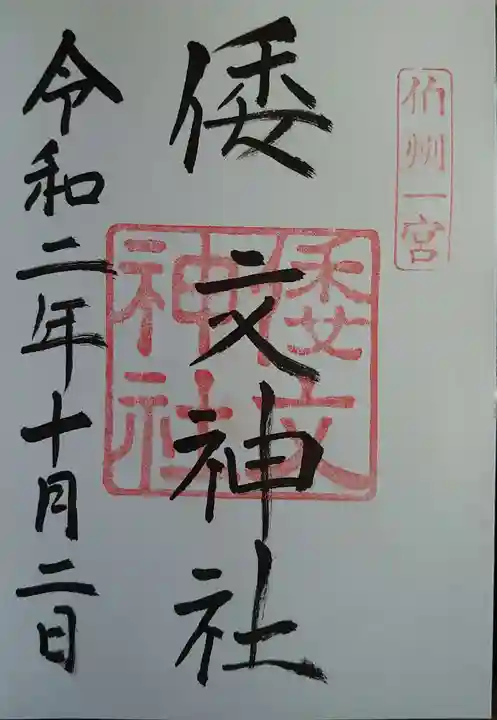 伯州一宮
倭文神社
倭文
神社
令和二年十月二日